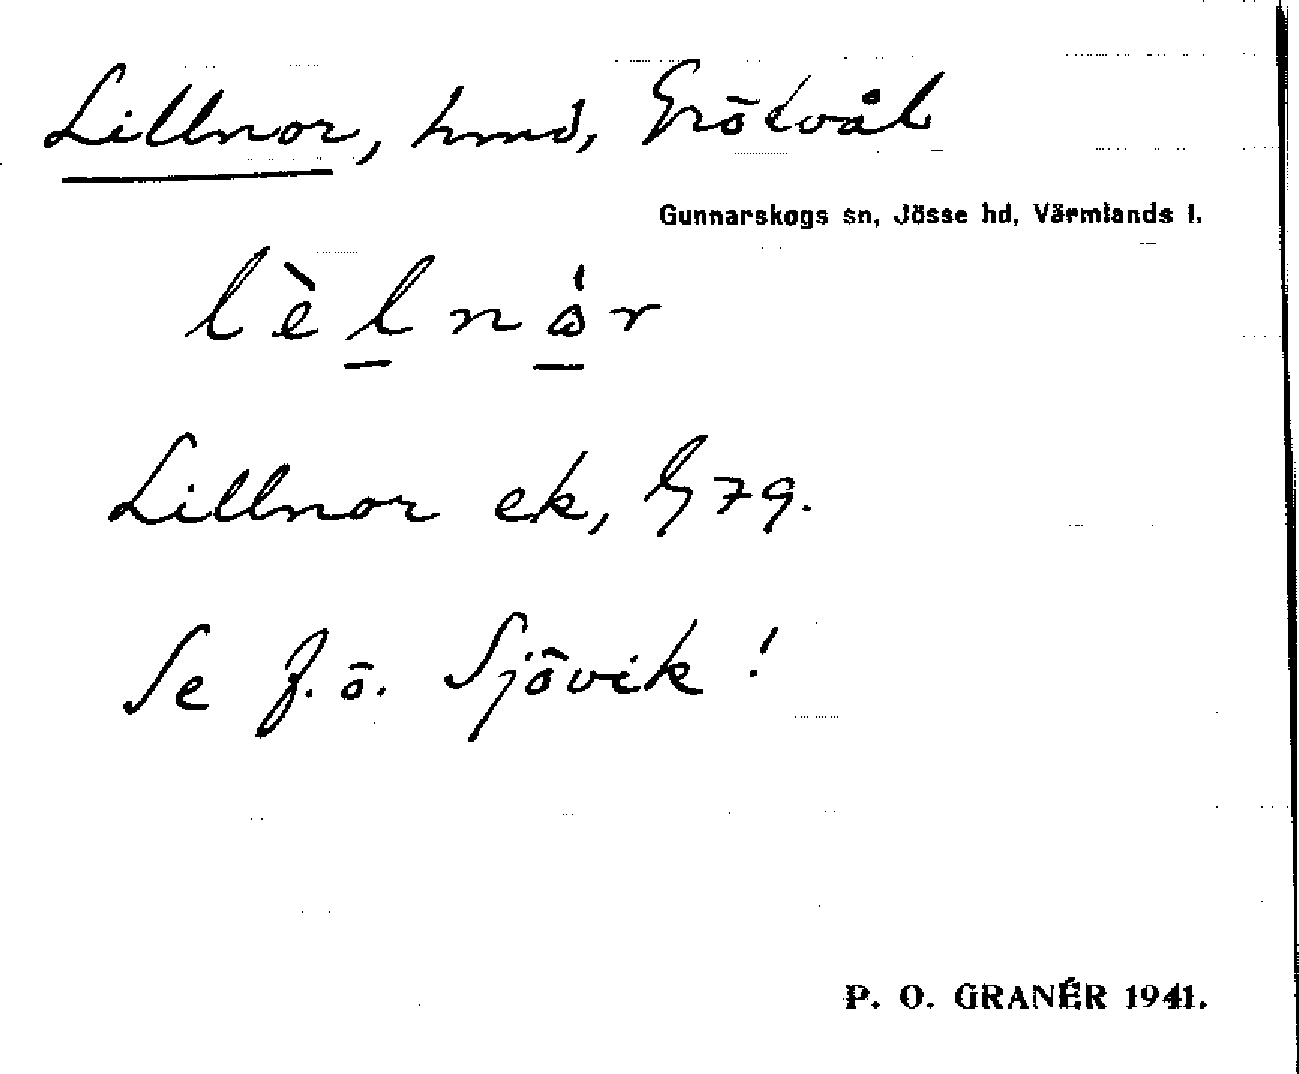 Lillnor, hmd, Grötvål
Gunnarskogs sn, Jösse hd, Värmlands l.
lèlnår
Lillnor ek, G79.
Se f.ö. Sjövik!
P. O. GRANÉR 1941.